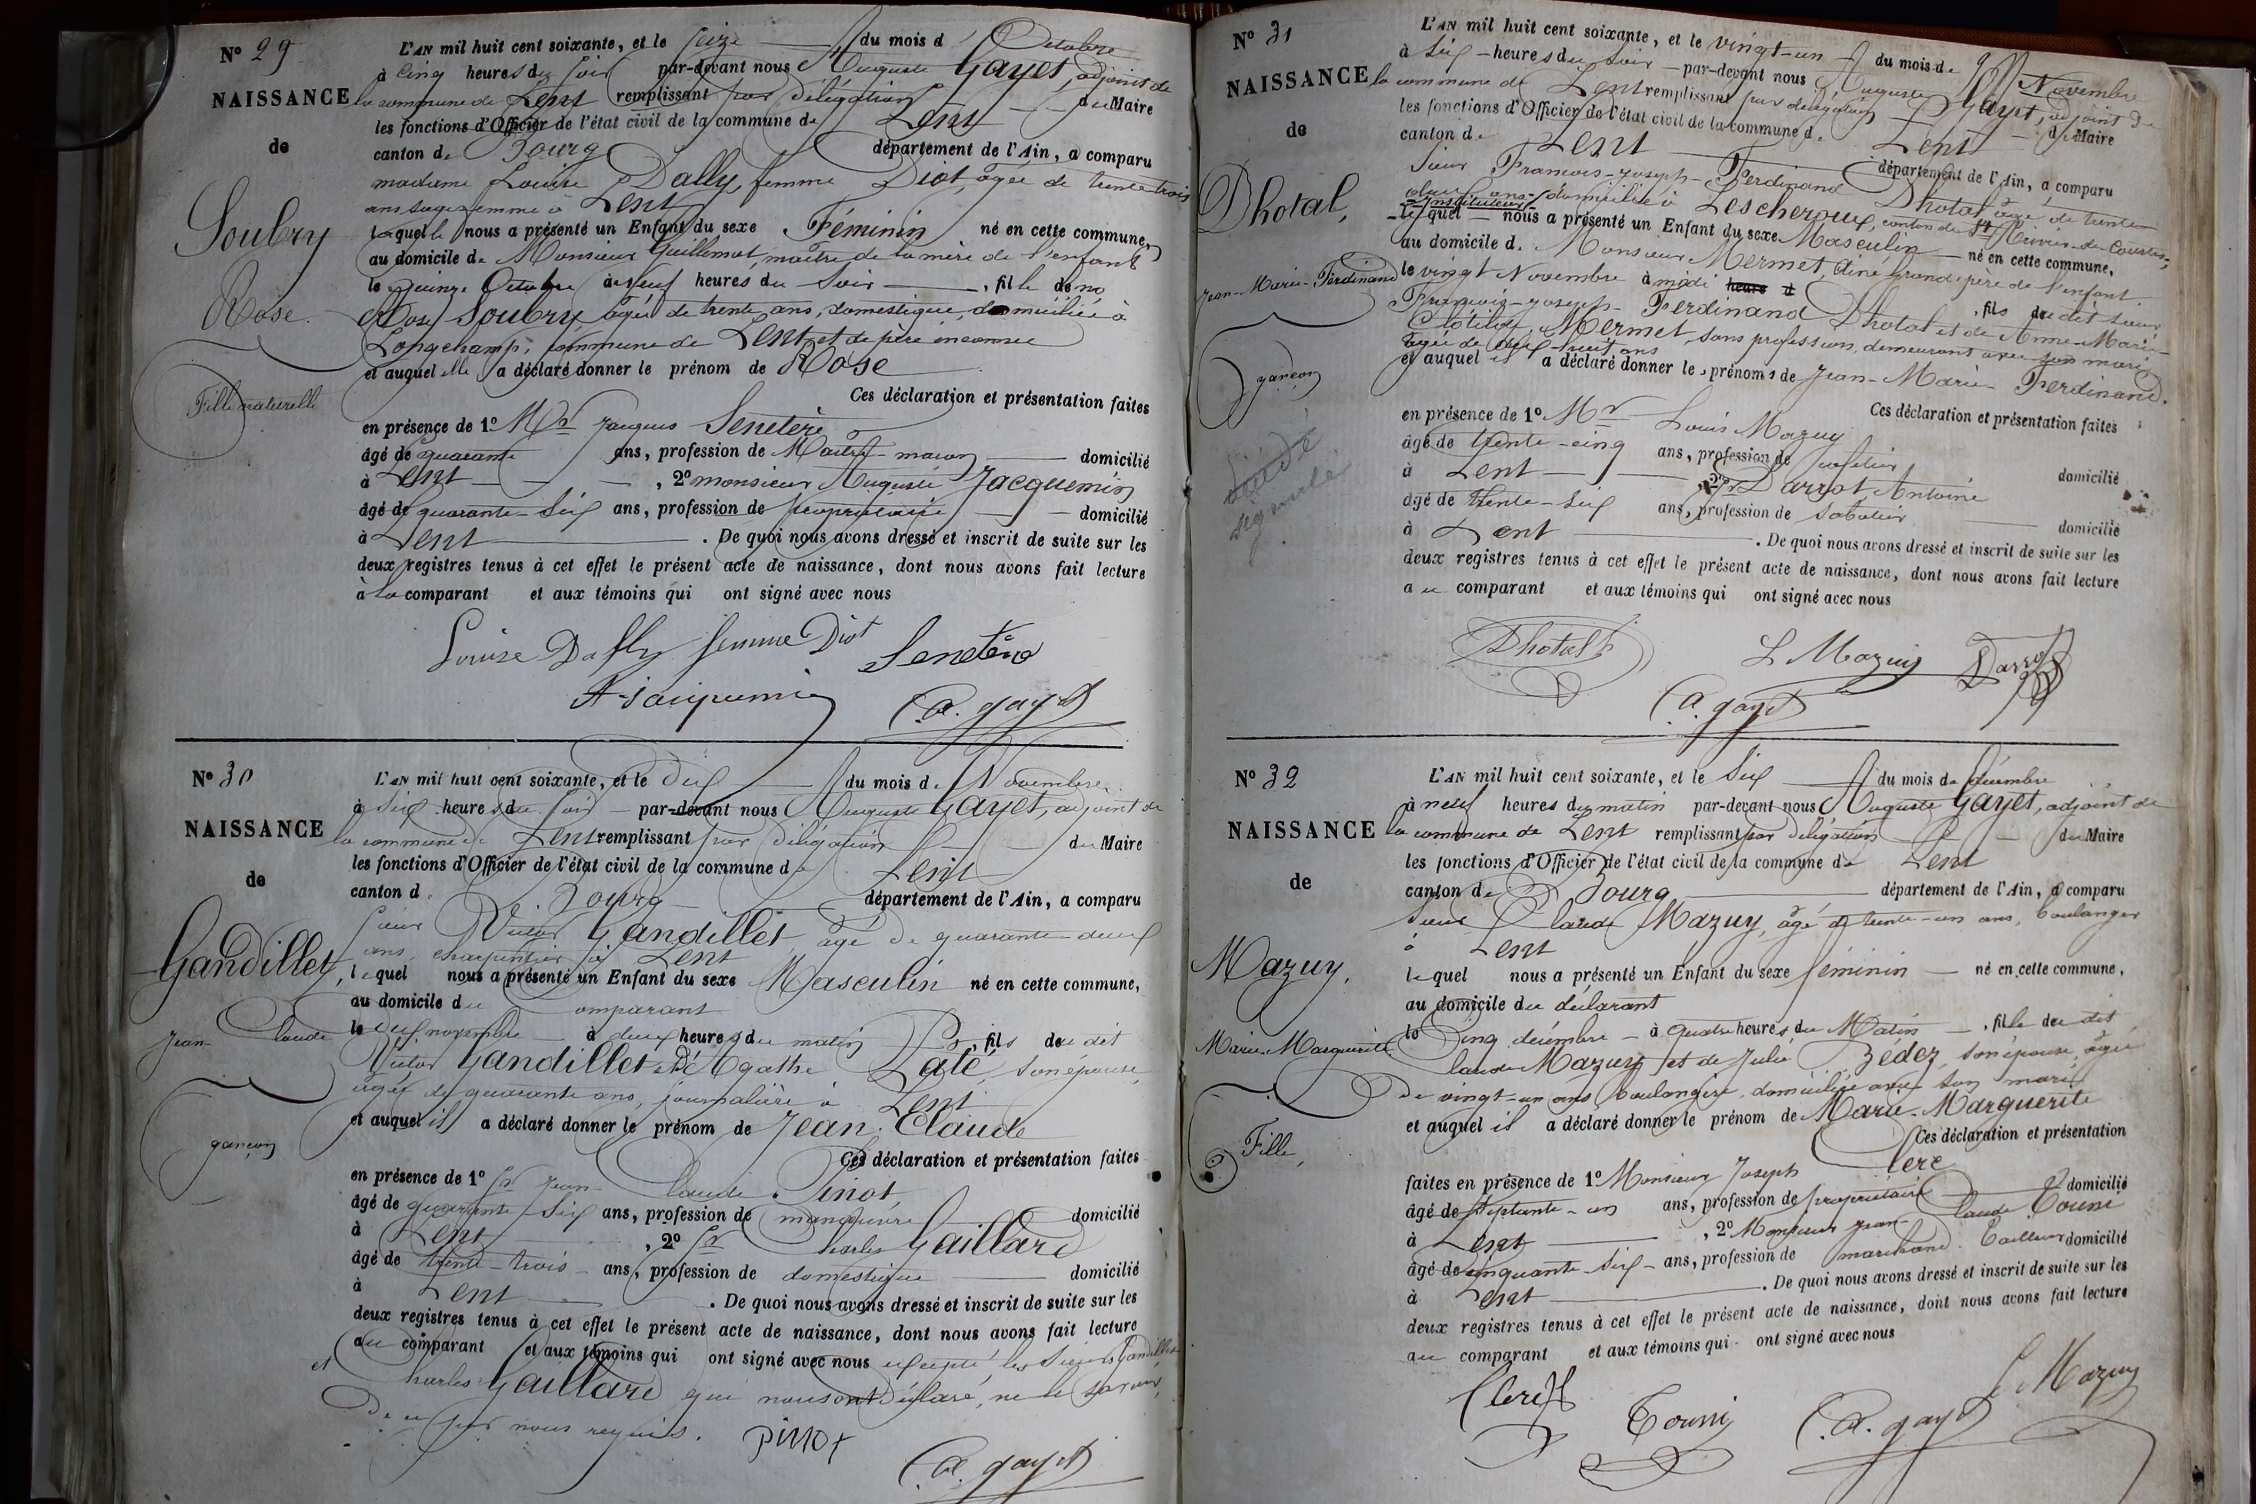 N° 29
NAISSANCE
de
Soubry
Rose.
Fille naturelle
L'AN mil huit cent soixante, et le seize du mois d'Octobre
à cinq heures du soir par-devant nous Auguste Gayet, adjoint de
la commune de Lent remplissant par délégation du Maire
les fonctions d'Officier de l'état civil de la commune de Lent
canton de Bourg département de l'Ain, a comparu
madame Louise Dally, femme Diot, âgée de trente trois
ans sage femme à Lent
laquelle nous a présenté un Enfant du sexe Féminin né en cette commune,
au domicile de Monsieur Guillemot, maître de la mère de l'enfant
le quinze Octobre à neuf heures du Soir, fille de
Rose Soubry, âgée de trente ans, domestique, domiciliée à
Longchamp, commune de Lent et de père inconnu
et auquel elle a déclaré donner le prénom de Rose
Ces déclaration et présentation faites
en présence de 1° Mr Jacques Senetère
âgé de quarante ans, profession de Maître-maçon domicilié
à Lent, 2° monsieur Auguste Jacquemin
âgé de quarante-six ans, profession de propriétaire domicilié
à Lent. De quoi nous avons dressé et inscrit de suite sur les
deux registres tenus à cet effet le présent acte de naissance, dont nous avons fait lecture
à la comparant et aux témoins qui ont signé avec nous
Louise Dally femme Diot Senetère
A. Jacquemin a. gayet
N° 30
NAISSANCE
de
Gandillet,
Jean-Claude
garçon
L'AN mil huit cent soixante, et le dix du mois de Novembre
à six heures du soir par-devant nous Auguste Gayet, adjoint de
la commune de Lent remplissant par délégation du Maire
les fonctions d'Officier de l'état civil de la commune de Lent
canton de Bourg département de l'Ain, a comparu
sieur Victor Gandillet, âgé de quarante-deux
ans, charpentier à Lent
lequel nous a présenté un Enfant du sexe Masculin né en cette commune,
au domicile du comparant
le dix novembre à deux heures du matin, fils du dit
Victor Gandillet et d'Agathe Laté, son épouse,
âgée de quarante ans, journalière à Lent
et auquel il a déclaré donner le prénom de Jean-Claude
Ces déclaration et présentation faites
en présence de 1° Sr Jean-Claude Pinot
âgé de quarante-six ans, profession de manoeuvre domicilié
à Lent, 2° Sr Charles Gaillard
âgé de trente-trois ans, profession de domestique domicilié
à Lent. De quoi nous avons dressé et inscrit de suite sur les
deux registres tenus à cet effet le présent acte de naissance, dont nous avons fait lecture
au comparant et aux témoins qui ont signé avec nous excepté les Sieurs Gandillet
et Charles Gaillard qui nous ont déclaré, ne le savoir,
de ce par nous requis. pinot
a. gayet
N° 31
NAISSANCE
de
Dhotal,
Jean-Marie-Ferdinand
garçon
L'AN mil huit cent soixante, et le vingt-un du mois de Novembre
à six heures du soir par-devant nous Auguste Gayet, adjoint de
la commune de Lent remplissant par délégation du Maire
les fonctions d'Officier de l'état civil de la commune de Lent
canton de Lent département de l'Ain, a comparu
sieur François-Joseph-Ferdinand Dhotal âgé de trente
deux ans, domicilié à Lescheroux, canton de St Trivier-de-Courtes,
Instituteur
lequel nous a présenté un Enfant du sexe Masculin né en cette commune,
au domicile de Monsieur Mermet, Aîné grand-père de l'enfant
le vingt Novembre à midi heure d, fils du dit sieur
François-Joseph-Ferdinand Dhotal et de Anne-Marie-
Clotilde Mermet, sans profession, demeurant avec son mari
âgée de dix-huit ans
et auquel il a déclaré donner les prénoms de Jean-Marie-Ferdinand.
Ces déclaration et présentation faites
en présence de 1° Mr Louis Mazuy
âgé de trente-cinq ans, profession de cafetier domicilié
à Lent, 2° Sr Darrot, Antoine
âgé de trente-six ans, profession de sabotier domicilié
à Lent. De quoi nous avons dressé et inscrit de suite sur les
deux registres tenus à cet effet le présent acte de naissance, dont nous avons fait lecture
au comparant et aux témoins qui ont signé avec nous
Dhotal L Mazuy Darrot
a. gayet
N° 32
NAISSANCE
de
Mazuy,
Marie-Marguerite
Fille,
L'AN mil huit cent soixante, et le six du mois de décembre
à neuf heures du matin par-devant nous Auguste Gayet, adjoint de
la commune de Lent remplissant par délégation du Maire
les fonctions d'Officier de l'état civil de la commune de Lent
canton de Bourg département de l'Ain, a comparu
sieur Claude Mazuy, âgé de trente-un ans, boulanger
à Lent
lequel nous a présenté un Enfant du sexe féminin né en cette commune,
au domicile du déclarant
le Cinq décembre à quatre heures du Matin, fille du dit
Claude Mazuy et de Julie Bédez, son épouse, âgée
de vingt-un ans boulangère, domiciliée avec son mari
et auquel il a déclaré donner le prénom de Marie-Marguerite
Ces déclaration et présentation
faites en présence de 1° Monsieur Joseph Clerc
âgé de septante-un ans, profession de propriétaire domicilié
à Lent, 2° Monsieur Jean-Claude Tourni
âgé de cinquante-six ans, profession de marchand-Tailleur domicilié
à Lent. De quoi nous avons dressé et inscrit de suite sur les
deux registres tenus à cet effet le présent acte de naissance, dont nous avons fait lecture
au comparant et aux témoins qui ont signé avec nous
Clerc Tourni a. gayet C Mazuy